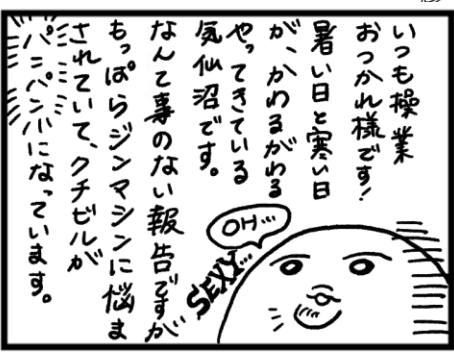 いつも操業
おつかれ様です！
暑い日と寒い日
が、かわるがわる
やってきている
気仙沼です。
なんて事のない報告ですが
もっぱらジンマシンに悩ま
されていて、クチビルが
パンパンパンになっています。
OH…
SEXY…